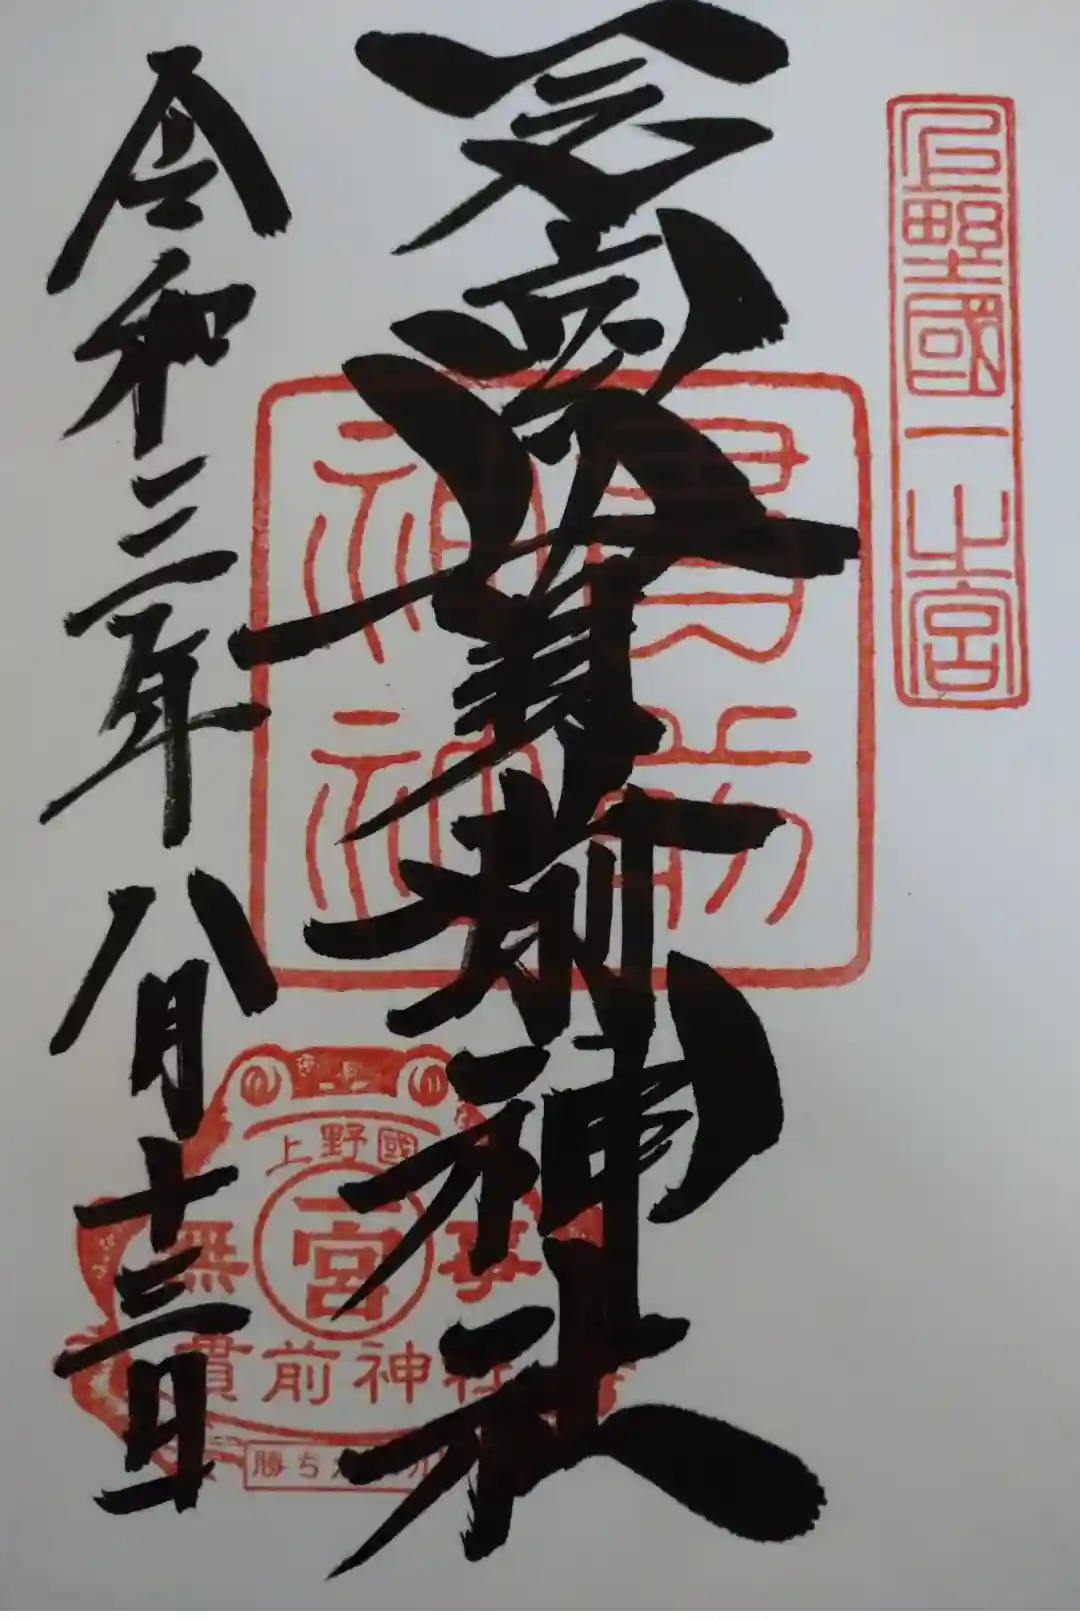 上野國一之宮
貫前神社
貫前神社
令和三年八月十三日
上野國
一宮
無事
貫前神社
勝ち